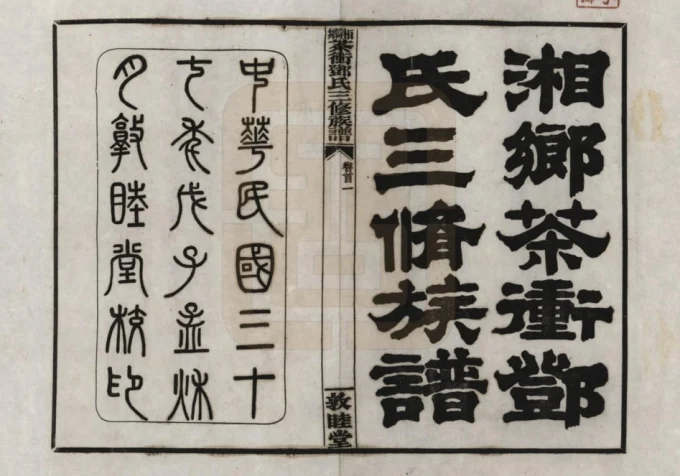 湘鄉茶衝鄧
氏三脩族譜
湘鄉茶衝鄧氏三修族譜
卷首一
敦睦堂
中華民國三十
七年戊子孟秋
月敦睦堂校印